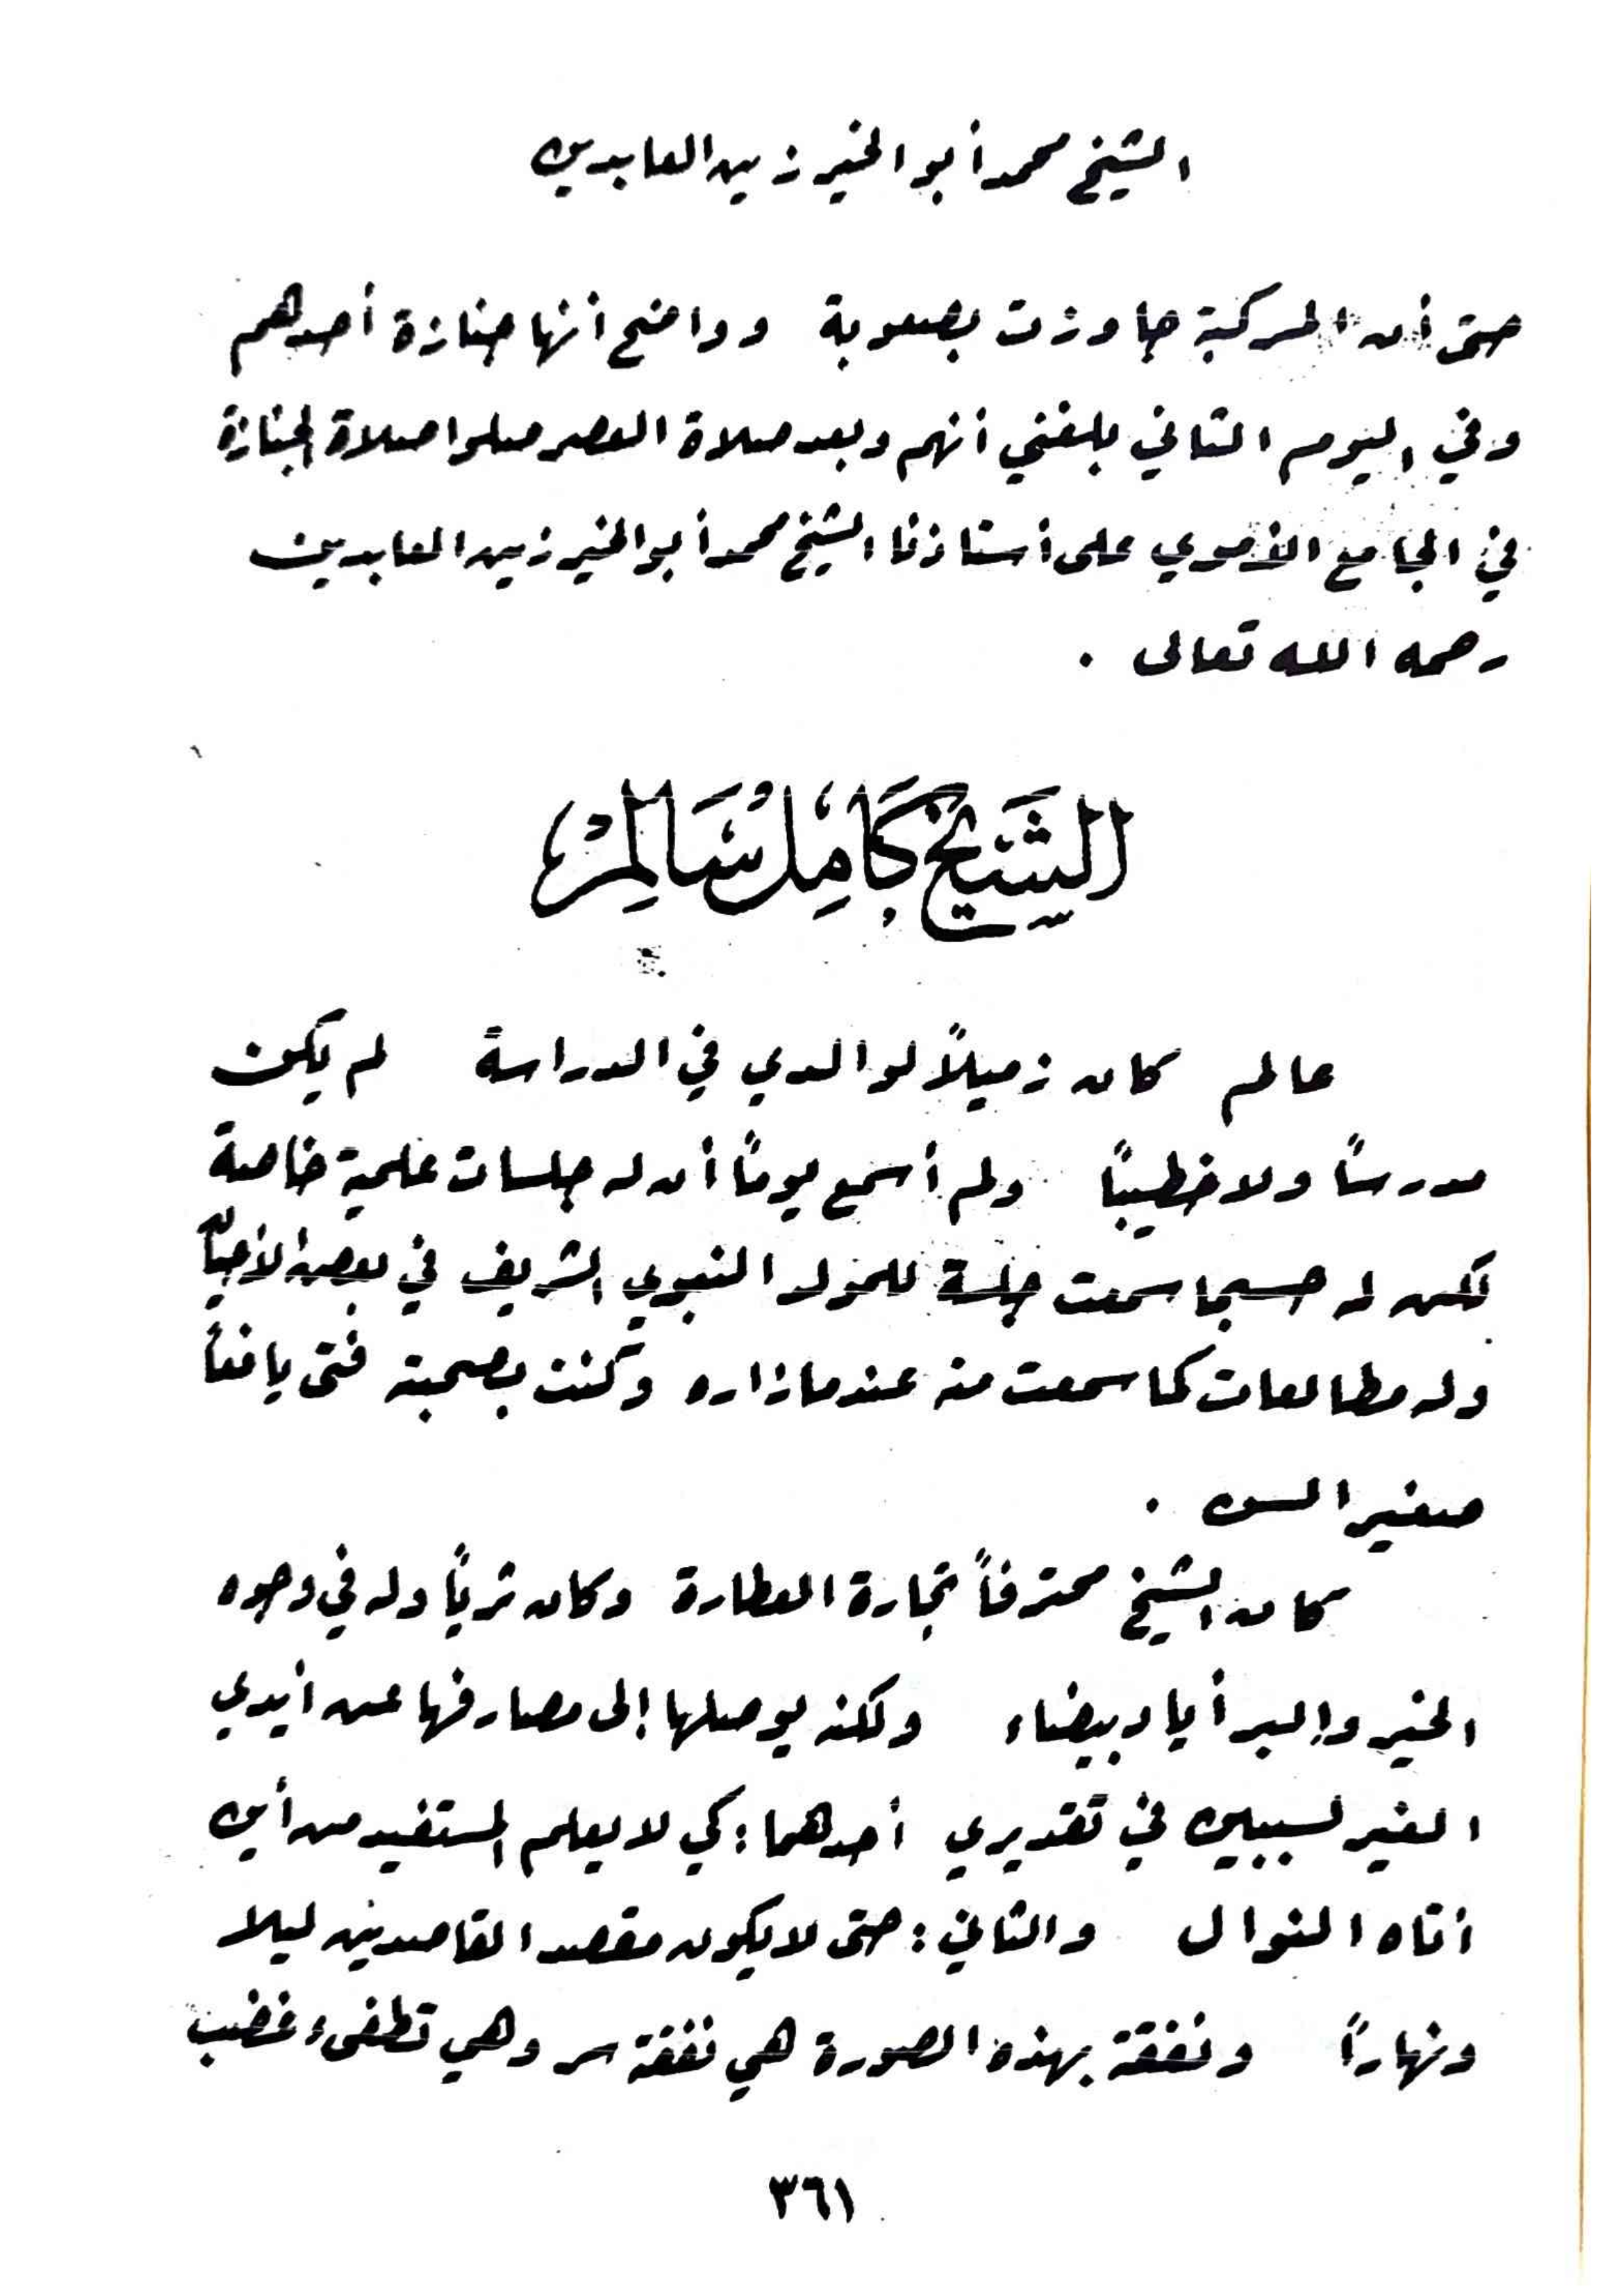 الشيخ محمد أبو الخير زين العابدين
حتى أن المركبة جاوزت بصعوبة وواضح انها جنازة أحدهم
وفي اليوم الثاني بلغني أنهم وبعد صلاة العصر صلوا صلاة الجنازة
في الجامع الأموي على أستاذنا الشيخ محمد أبو الخير زين العابدين
رحمه الله تعالى .
الشَيْخ كَامِل سَالِمْ
عالم كان زميلاً لوالدي في الدراسة لم يكن
مدرساً ولا خطيباً ولم أسمع يوماً أن له جلسات علمية خاصة
لكن له حسبما سمعت جلسة للمولد النبوي الشريف في بعض الأحيان
وله مطالعات كما سمعت منه عندما زاره وكنت بصحبته فتى يافعاً
صغير السن .
كان الشيخ محترفاً تجارة العطارة وكان ثرياً وله في وجوه
الخير والبر أياد بيضاء ولكنه يوصلها إلى مصارفها عن أيدي
الغير لسببين في تقديري أحدهما : كي لا يعلم المستفيد من أين
أتاه النوال والثاني : حتى لا يكون مقصد القاصدين ليلا
ونهاراً ونفقة بهذه الصورة هي نفقة سر وهي تطفىء غضب
٣٦١